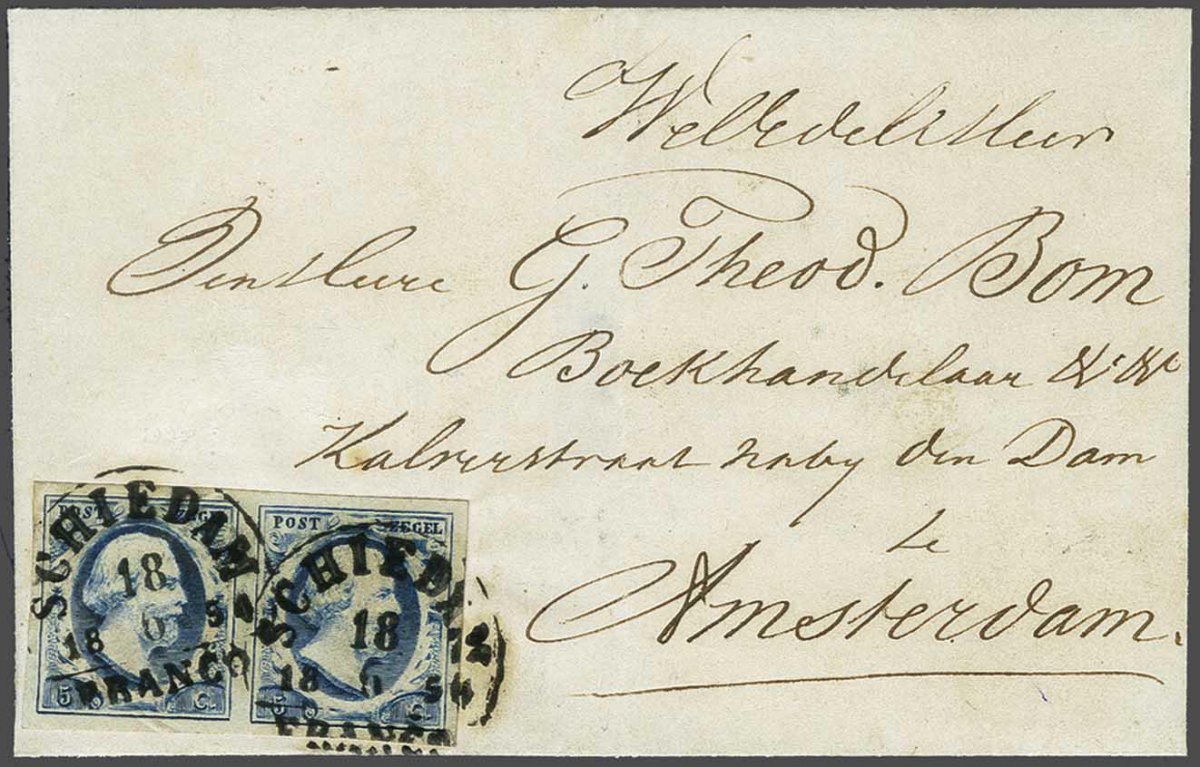 WelEdele Heer
Den Heere G. Theod. Bom
Boekhandelaar
Kalverstraat naby den Dam
te
Amsterdam.
POST ZEGEL
POST ZEGEL
SCHIEDAM
18
18 6 54
FRANCO
SCHIEDAM
18
18 6 54
FRANCO
5 C.
5